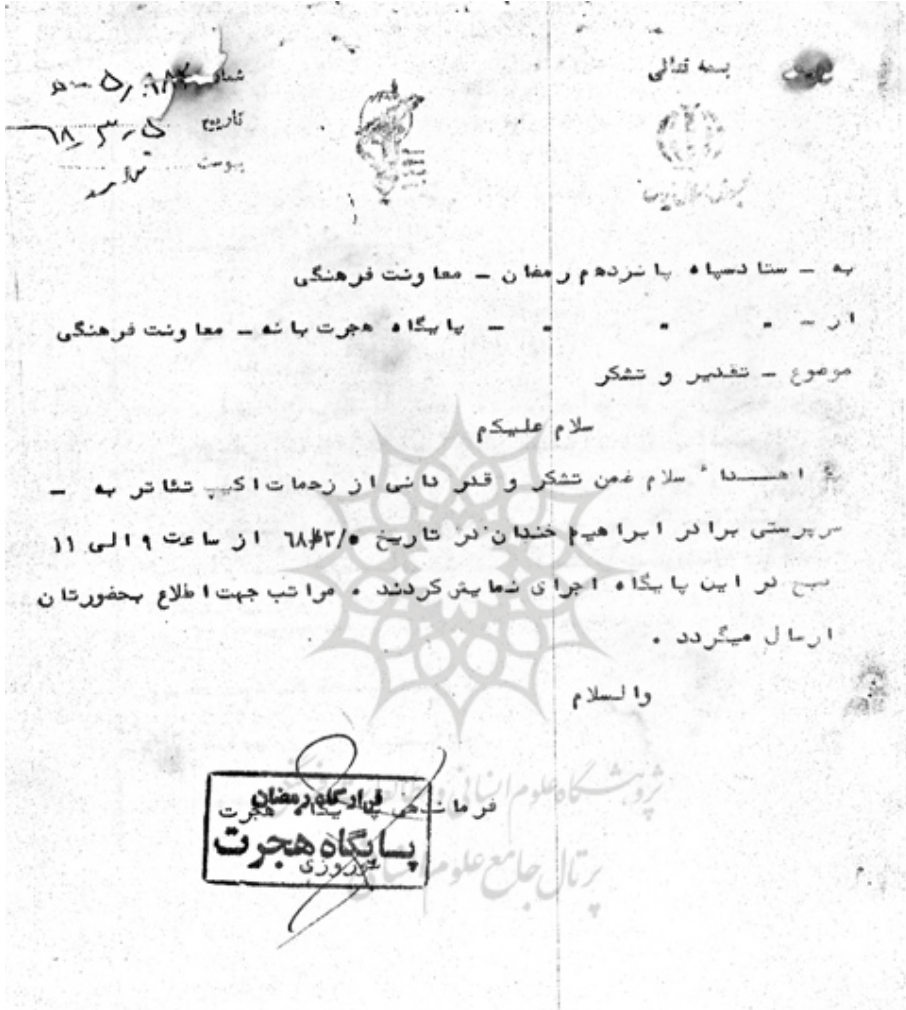 بسمه تعالی
شماره
تاریخ ۶۸-۳-۵
پیوست
جمهوری اسلامی ایران
به – ستاد سپاه پانزدهم رمضان – معاونت فرهنگی
از – " " " – پایگاه هجرت بانه – معاونت فرهنگی
موضوع – تقدیر و تشکر
سلام علیکم
با اهداء سلام ضمن تشکر و قدردانی از زحمات اکیپ تئاتر به –
سرپرستی برادر ابراهیم خندان در تاریخ ۶۸/۳/۵ از ساعت ۹ الی ۱۱
صبح در این پایگاه اجرای نمایش کردند . مراتب جهت اطلاع بحضورتان
ارسال میگردد .
والسلام
فرماندهی پایگاه هجرت
قرارگاه رمضان
پایگاه هجرت
پژوهشگاه علوم انسانی و مطالعات فرهنگی
پرتال جامع علوم انسانی